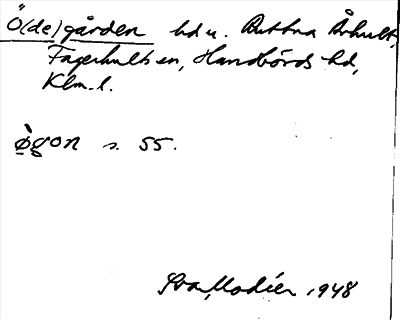 Ö(de)gården hd u. Buttna Århult,
Fagerhults sn, Handbörds hd,
Klm. l.
ø̀gon s. 55.
Iva Modéer 1948